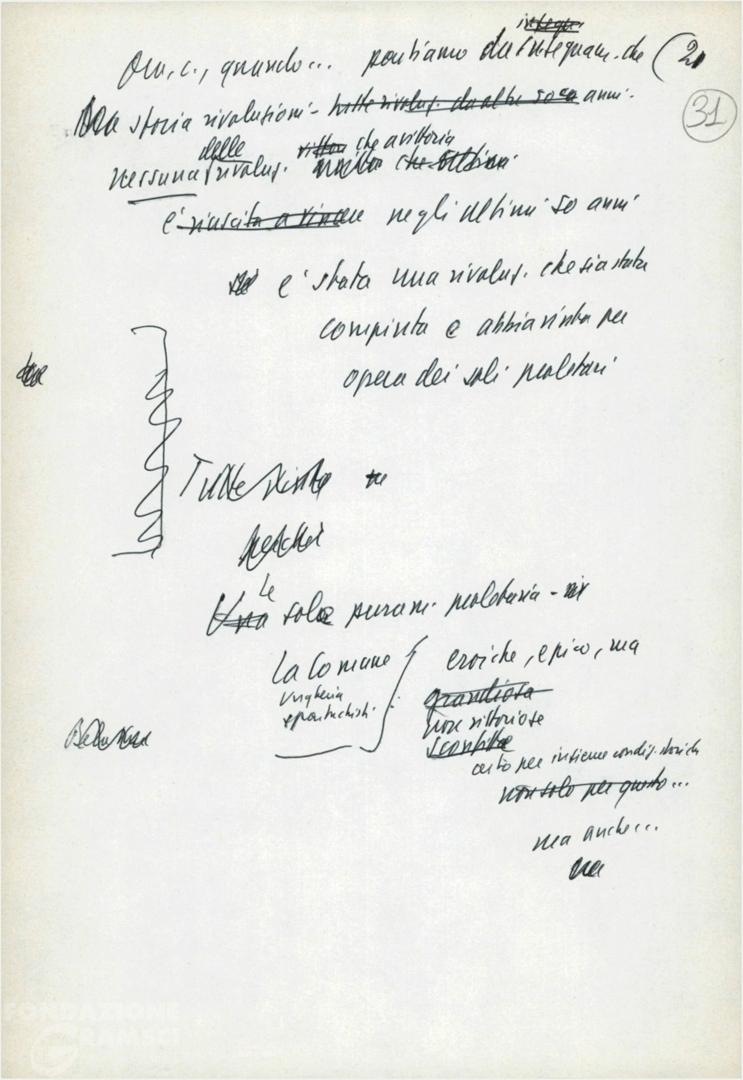 Ora, c., quando... partiamo da insegnam. che (2
31
dalla storia rivoluzioni - tutte rivoluz. da altri 50 anni.
nessuna delle rivoluz. che a vittoria
è riuscita a vincere negli ultimi 50 anni
è stata una rivoluz. che sia stata
compiuta e abbia vinto per
opera dei soli proletari
Tutte
perché
Le sole puram. proletaria -
La Comune
Ungheria
spartachisti
eroiche, epico, ma
grandiosa
non vittoriose
sconfitte
certo per insieme condiz. storich
non solo per questo...
ma anche...
ma
FONDAZIONE
GRAMSCI